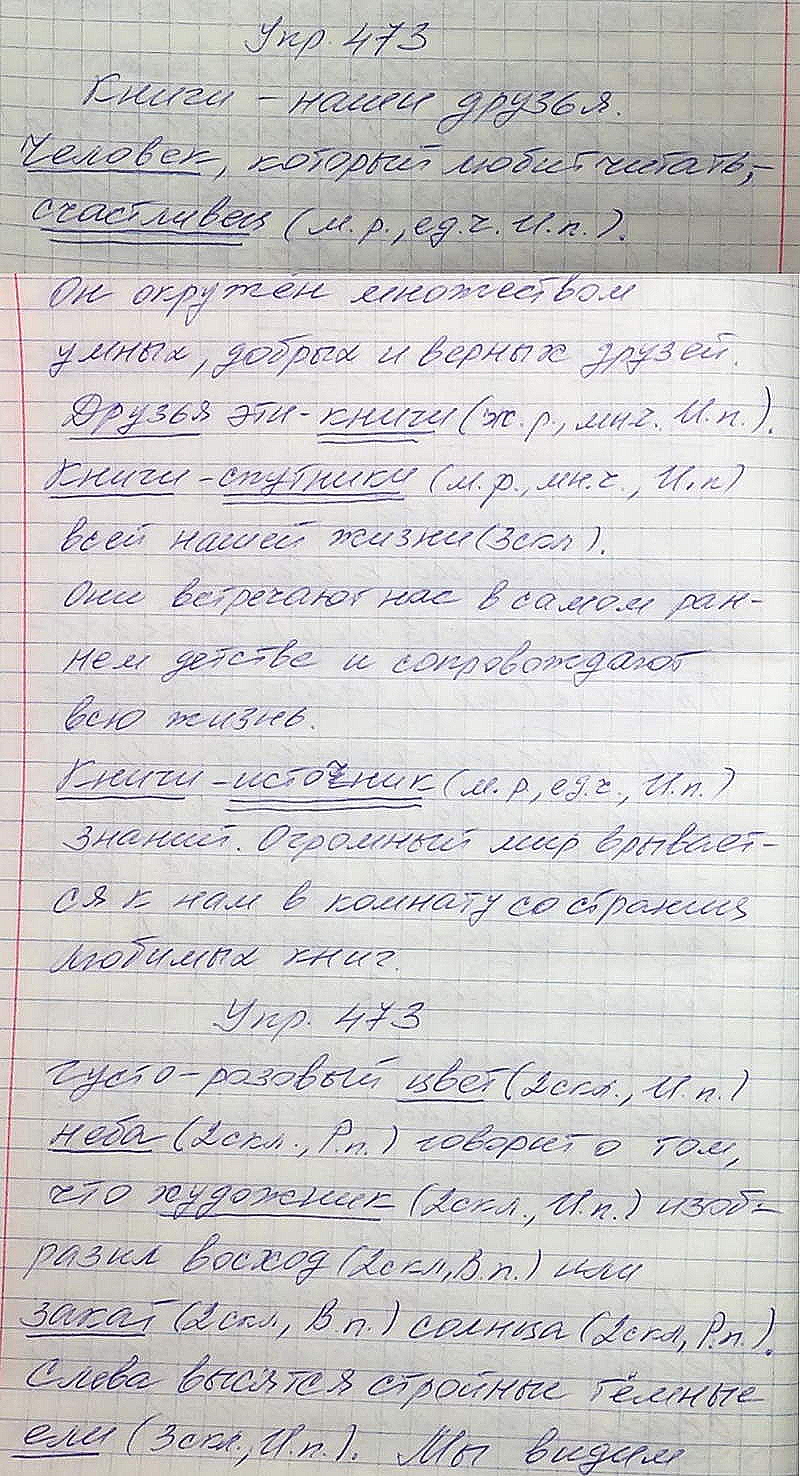 Упр. 473
Книги – наши друзья.
Человек, который любит читать, –
счастливец (м.р., ед.ч. И.п.).
Он окружён множеством
умных, добрых и верных друзей.
Друзья эти – книги (ж.р., мн.ч. И.п.).
Книги – спутники (м.р., мн.ч., И.п)
всей нашей жизни (3скл).
Они встречают нас в самом ран-
нем детстве и сопровождают
всю жизнь.
Книги – источник (м.р, ед.ч., И.п.)
знаний. Огромный мир врывает-
ся к нам в комнату со страниц
любимых книг.
Упр. 473
Густо-розовый цвет (2скл., И.п.)
неба (2скл., Р.п.) говорит о том,
что художник (2скл., И.п.) изоб-
разил восход (2скл, В.п.) или
закат (2скл, В.п.) солнца (2скл, Р.п.).
Слева высятся стройные тёмные
ели (3скл., И.п.). Мы видим